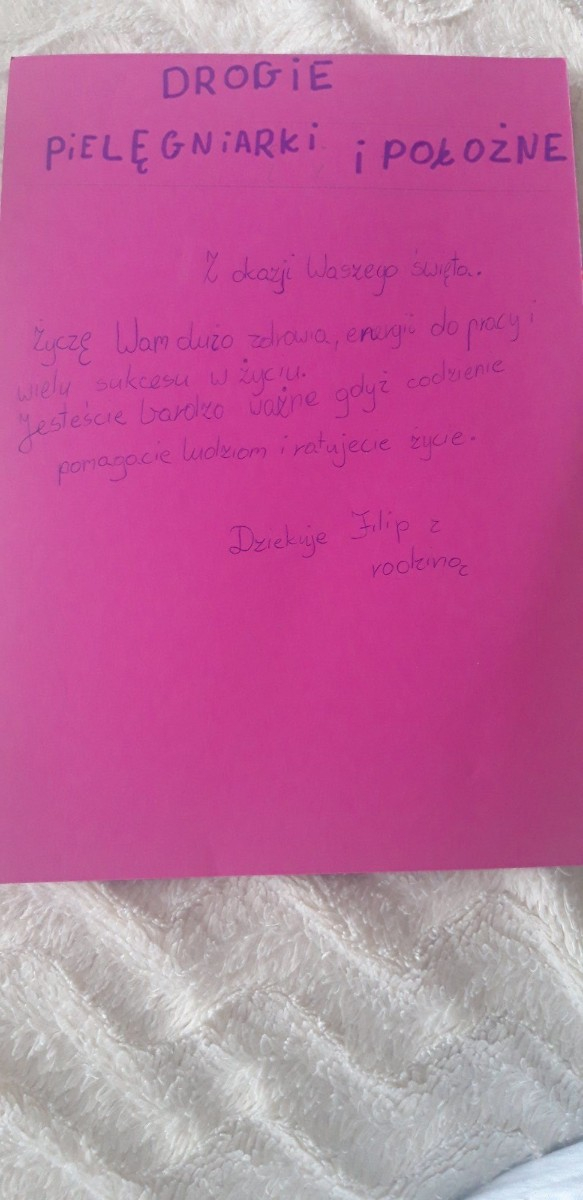 DROGiE
PiELĘGNiARKi i POŁOŻNE
Z okazji Waszego święta.
Życzę Wam dużo zdrowia, energii do pracy i
wielu sukcesu w życiu.
Jesteście bardzo ważne gdyż codzienie
pomagacie ludziom i ratujecie życie.
Dziekuje Filip z
rodziną